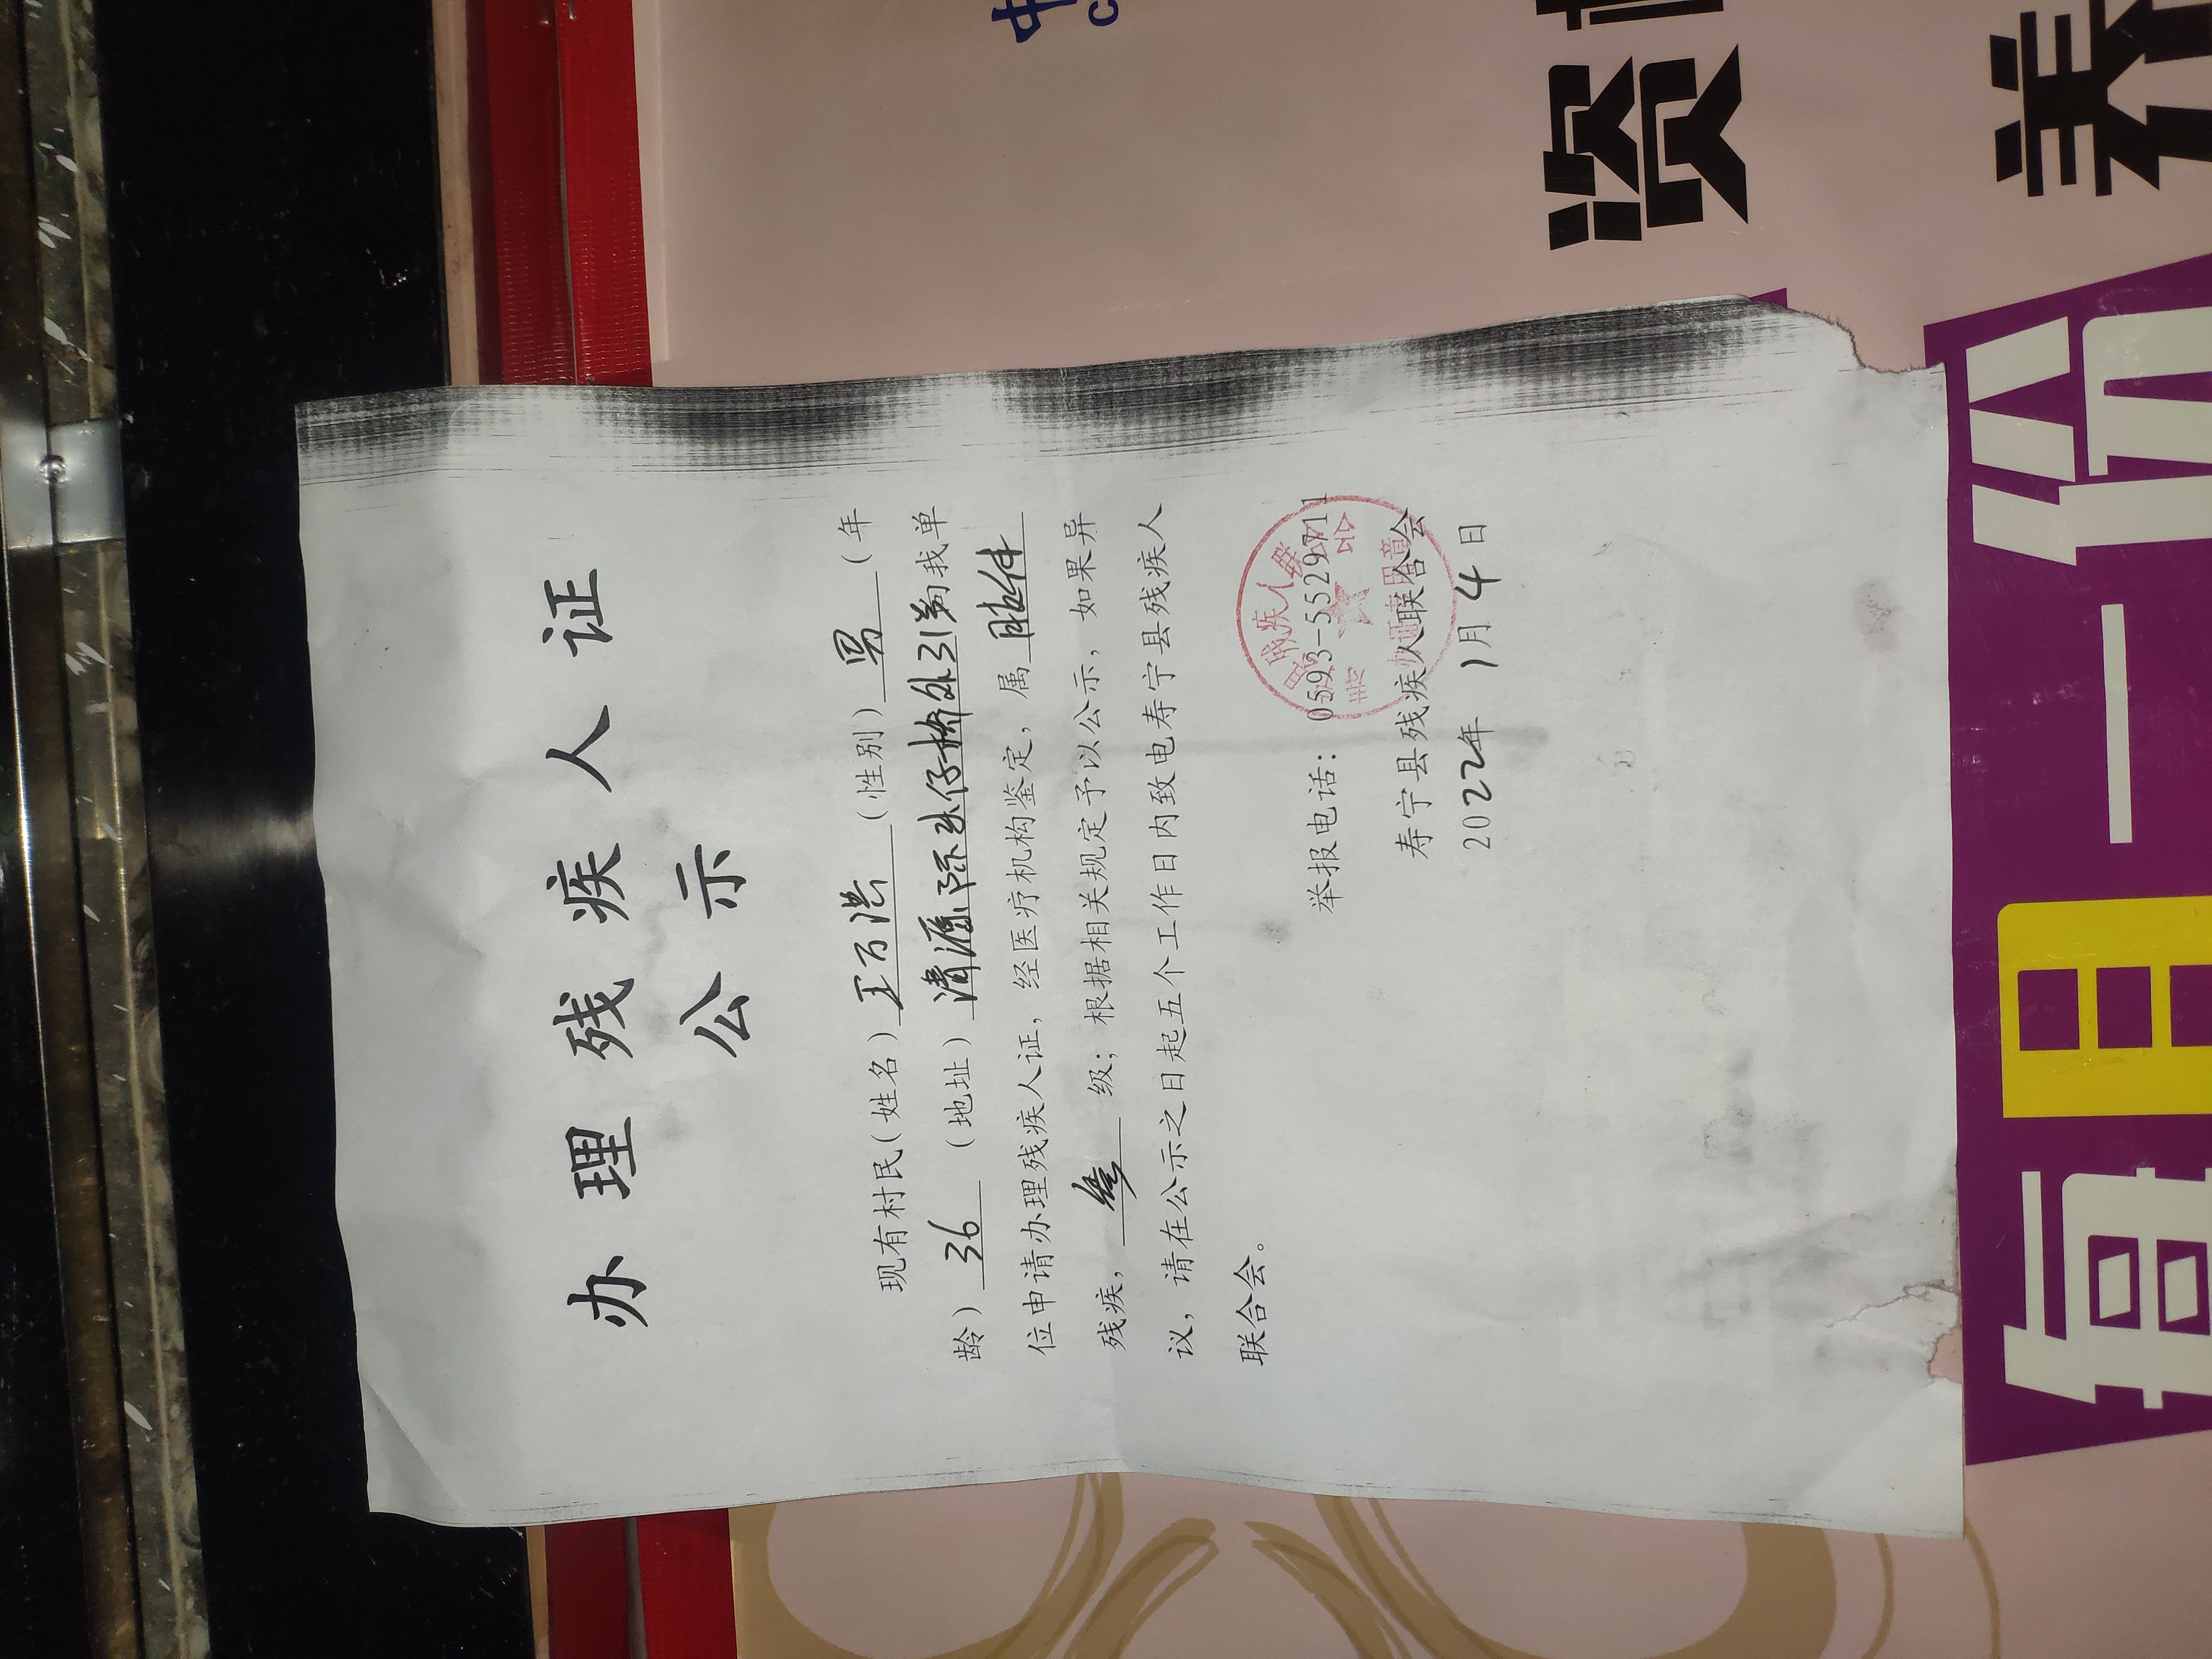 办理残疾人证
公示
现有村民(姓名)王百洪(性别)男(年
龄)36(地址)清源 桥外31弟为我单
位申请办理残疾人证,经医疗机构鉴定,属肢体
残疾, 级;根据相关规定予以公示,如果异
议,请在公示之日起五个工作日内致电寿宁县残疾人
联合会。
举报电话:0593-5529711
寿宁县残疾人联合会
2022年1月4日
每日一
资
养
中